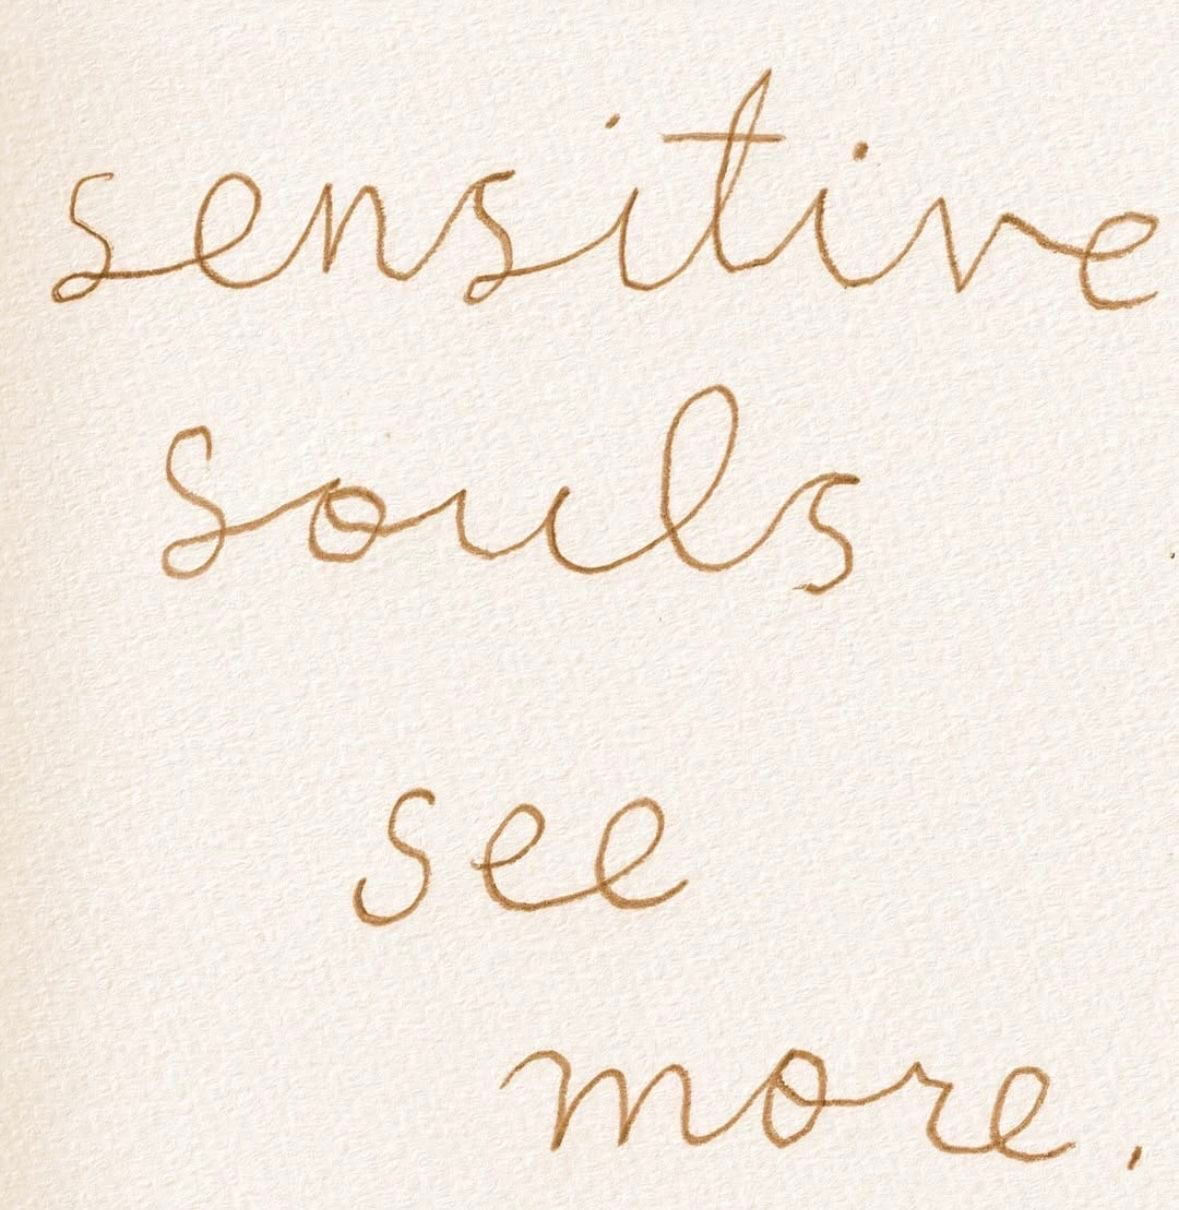 sensitive
souls
see
more.